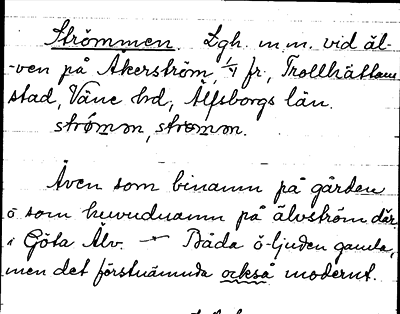 Strömmen. Lgh. m.m. vid äl-
-ven på Åkerström, 1/4 fr, Trollhättans
stad, Väne hd, Älfsborgs län.
strǿmm, strømm.
Även som binamn på gården
o som huvudnamn på älvström där
i Göta Älv. — Båda ö-ljuden gamla,
men det förstnämnda också modernt.